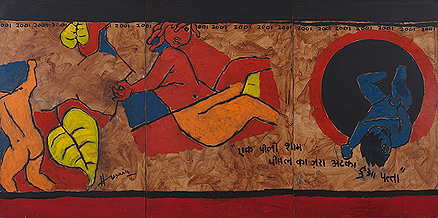 2001 2001 2001 2001 2001 2001 2001 2001 2001 2001 2001 2001 2001 2001 2001 2001
"एक पीली शाम
पीपल का जरा अटका
हुआ पत्ता"
Husain